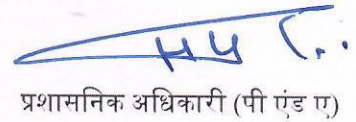 प्रशासनिक अधिकारी (पी एंड ए)